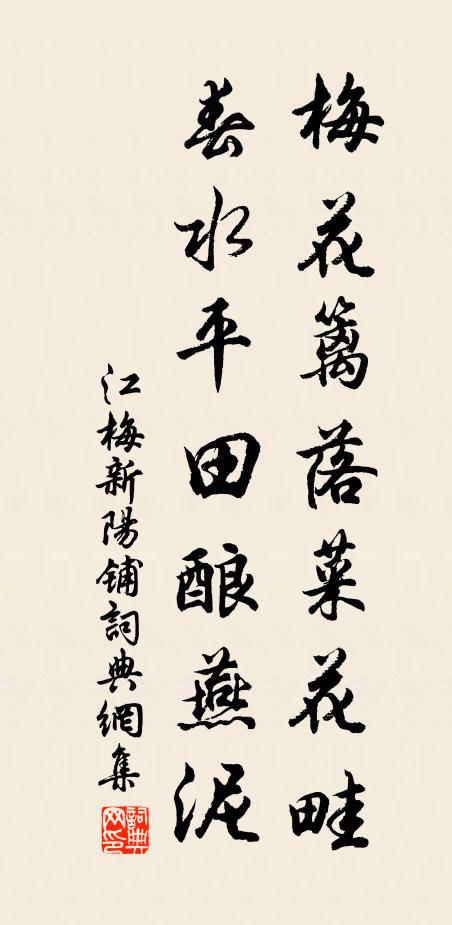 梅花篱落菜花畦
春水平田酿燕泥
江梅新陽铺詞典網集
詞典网印